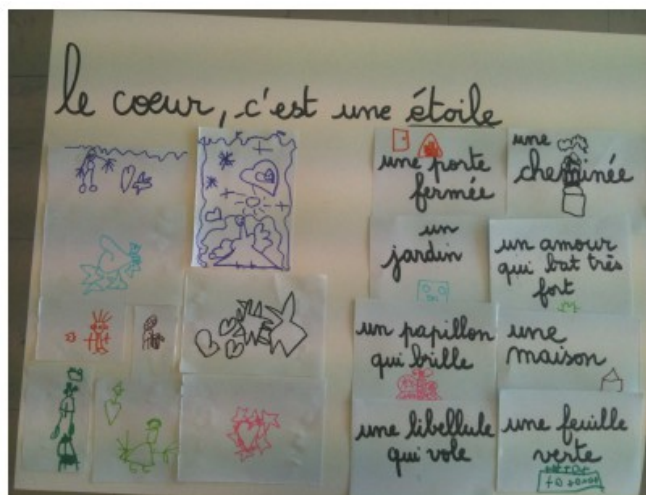 le coeur, c'est une étoile
une porte
fermée
une
cheminée
un
jardin
un amour
qui bat très
fort
un papillon
qui brille
une
maison
une libellule
qui vole
une feuille
verte